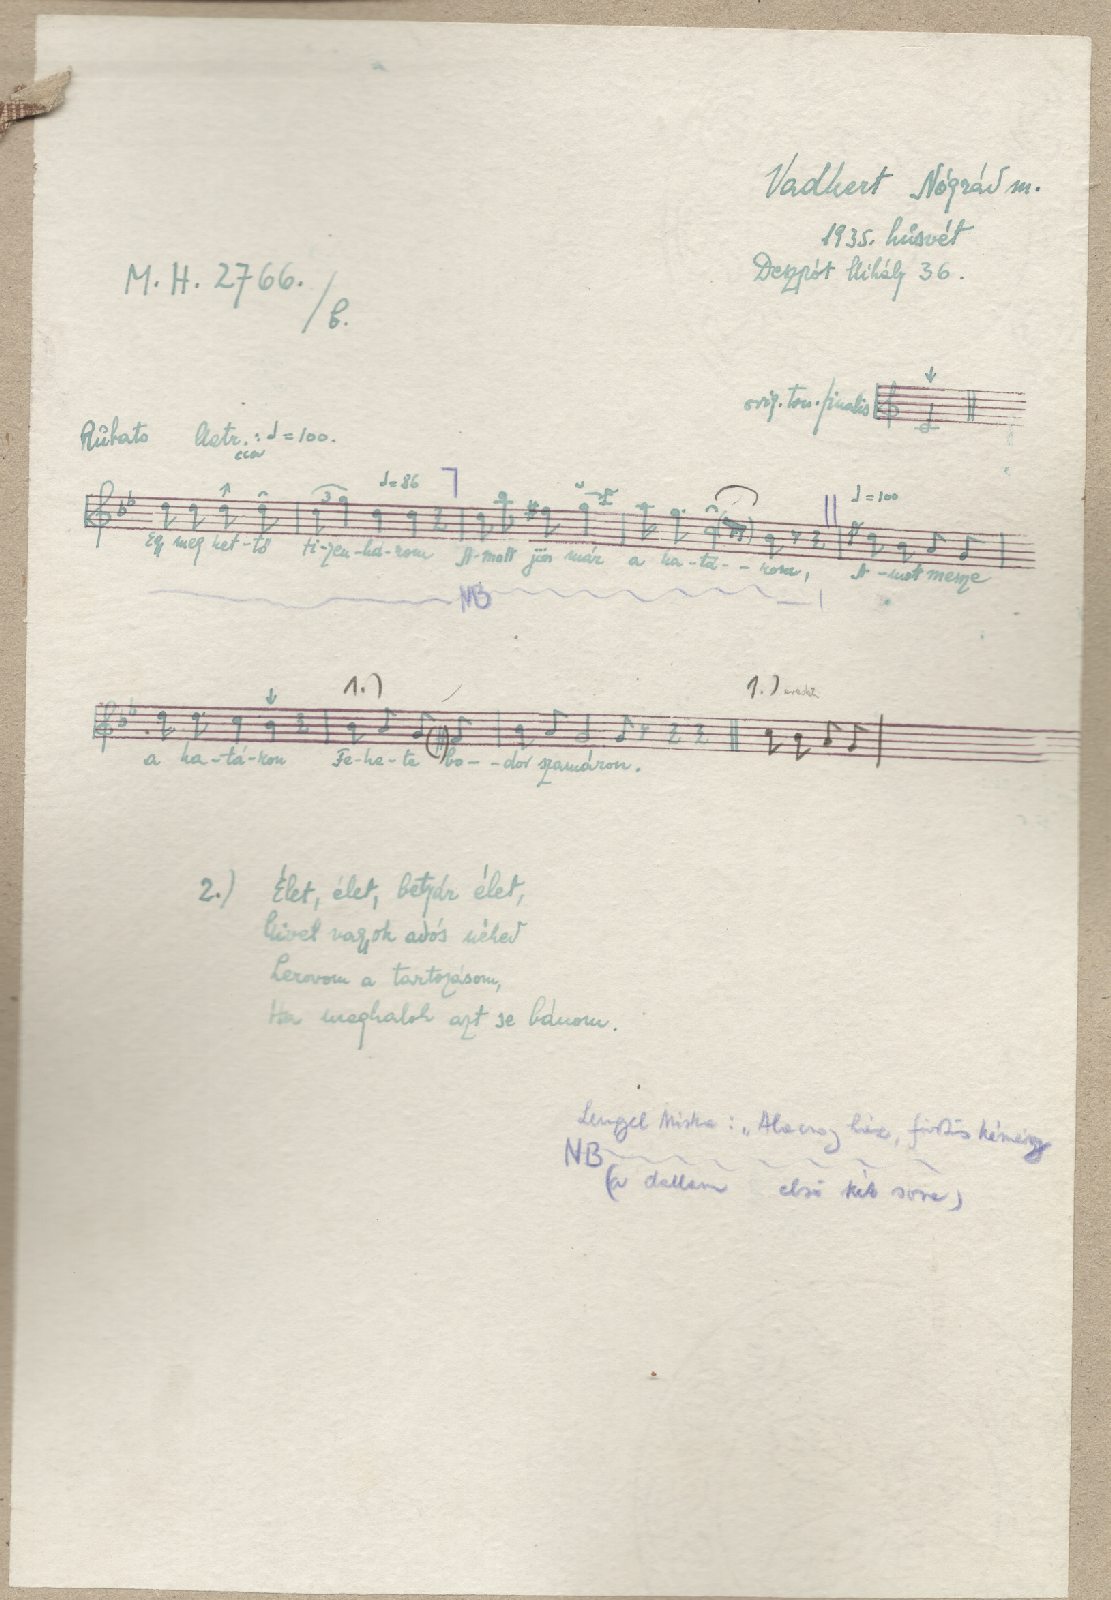 Vadkert Nógrád m.
1935. húsvét
Deszpót Mihály 36.
M. H. 2766./b.
orig. ton. finalis
Rubato Metr.: ♩=100.
cca
3 ♩=86 ♩=100
Egy meg ket-tő ti-zen-há-rom A-mott jön már a ha-tá--rom, A-mot messze
NB
1.) 1.)
a ha-tá-ron Fe-ke-te bo--dor szamáron.
2.) Élet, élet, betyár élet,
Mivel vagyok adós néked
Lerovom a tartozásom,
Ha meghalok azt se bánom.
Lengyel Miska: „Alacsony ház, füstös kémény
NB
(a dallam első két sora)